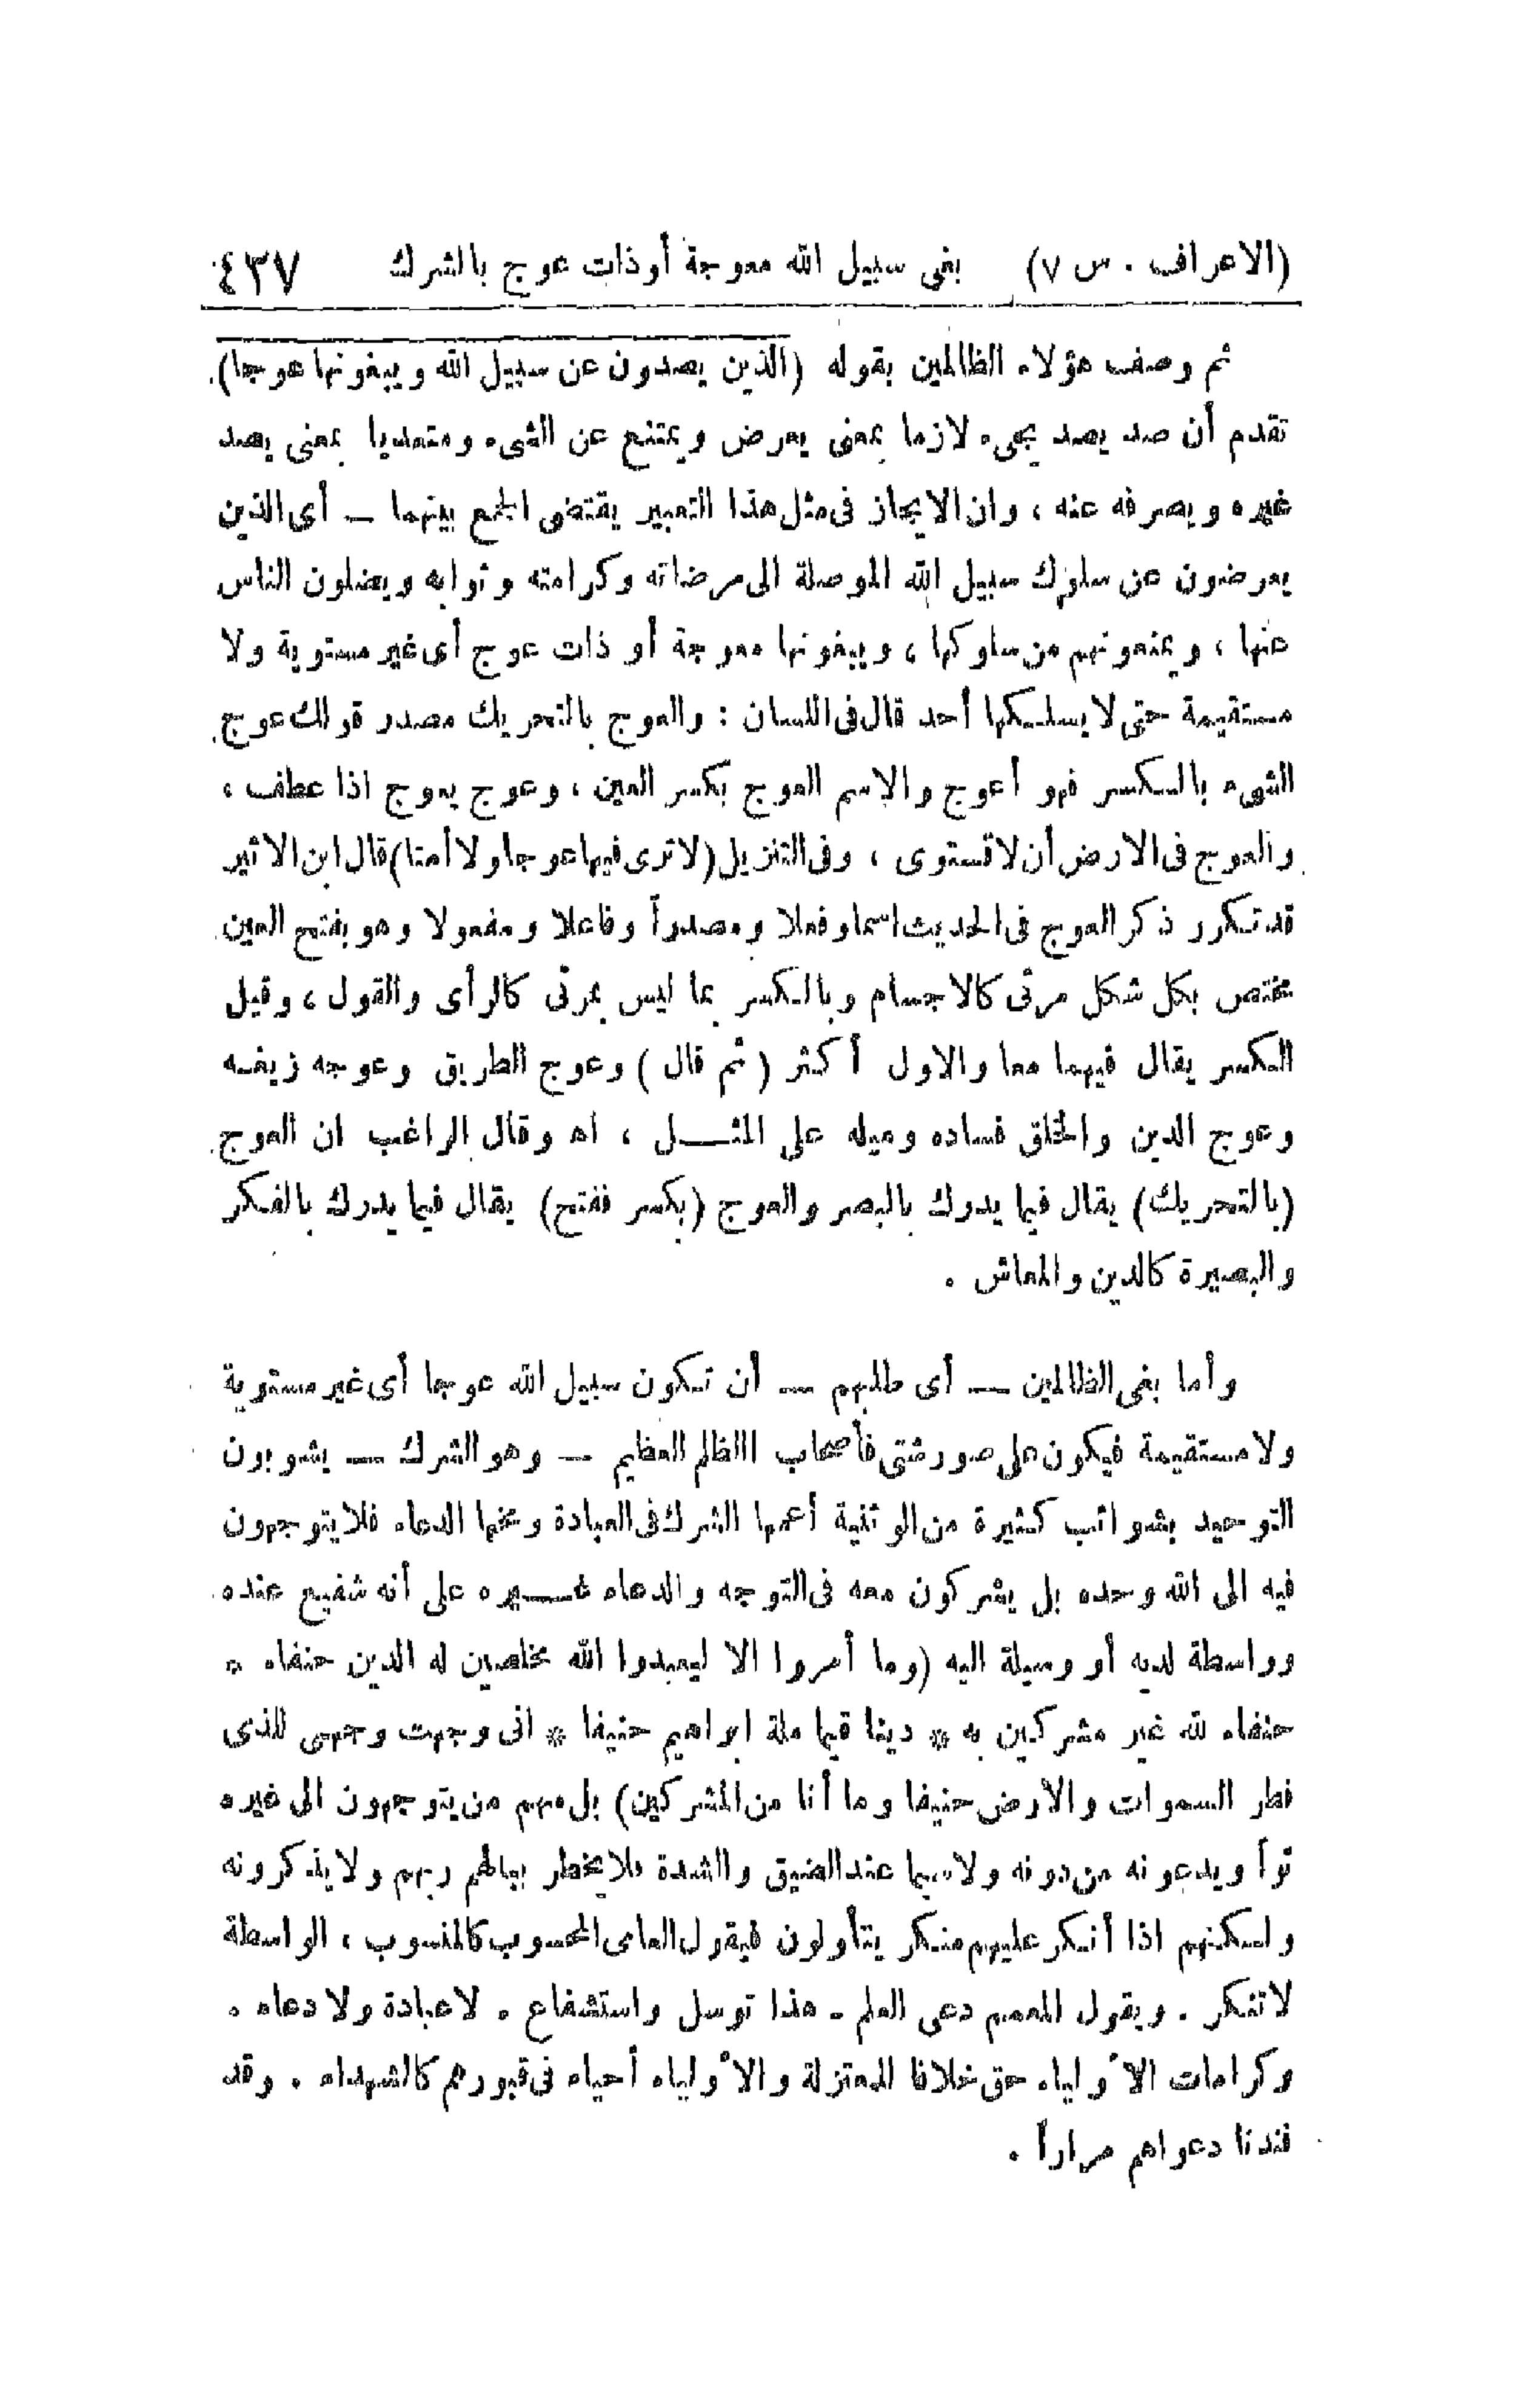 (الاعراف . س ٧) بغى سبيل الله معوجة أو ذات عوج بالشرك ٤٣٧
ثم وصف هؤلاء الظالمين بقوله (الذين يصدون عن سبيل الله ويبغونها عوجا)
تقدم أن صد يصد يجىء لازما بمعنى يعرض ويمتنع عن الشىء ومتعديا بمعنى يصد
غيره ويصرفه عنه ، وان الايجاز فى مثل هذا التعبير يقتضى الجمع بينهما — أى الذين
يعرضون عن سلوك سبيل الله الموصلة الى مرضاته وكرامته وثوابه ويضلون الناس
عنها ، ويمنعونهم من سلوكها ، ويبغونها معوجة أو ذات عوج أى غير مستوية ولا
مستقيمة حتى لا يسلكها أحد قال فى اللسان : والعوج بالتحريك مصدر قولك عوج
الشىء بالكسر فهو أعوج والاسم العوج بكسر العين ، وعوج يعوج اذا عطف ،
والعوج فى الارض أن لا تستوى ، وفى التنزيل (لا ترى فيها عوجا ولا أمتا) قال ابن الاثير
قد تكرر ذكر العوج فى الحديث اسما وفعلا ومصدراً وفاعلا ومفعولا وهو بفتح العين
مختص بكل شكل مرئى كالاجسام وبالكسر بما ليس بمرئى كالرأى والقول ، وقيل
الكسر يقال فيهما معا والاول أكثر (ثم قال) وعوج الطريق وعوجه زيغه
وعوج الدين والخلق فساده وميله على المثل ، اه وقال الراغب ان العوج
(بالتحريك) يقال فيما يدرك بالبصر والعوج (بكسر ففتح) يقال فيما يدرك بالفكر
والبصيرة كالدين والمعاش .
وأما بغى الظالمين — أى طلبهم — أن تكون سبيل الله عوجا أى غير مستوية
ولا مستقيمة فيكون على صور شتى فأصحاب االظلم العظيم — وهو الشرك — يشوبون
التوحيد بشوائب كثيرة من الوثنية أعمها الشرك فى العبادة ومخها الدعاء فلا يتوجهون
فيه الى الله وحده بل يشركون معه فى التوجه والدعاء غيره على أنه شفيع عنده
وواسطة لديه أو وسيلة اليه (وما أمروا الا ليعبدوا الله مخلصين له الدين حنفاء *
حنفاء لله غير مشركين به * دينا قيما ملة ابراهيم حنيفا * انى وجهت وجهى للذى
فطر السموات والارض حنيفا وما أنا من المشركين) بل منهم من يتوجهون الى غيره
تواً ويدعونه من دونه ولا سيما عند الضيق والشدة فلا يخطر ببالهم ربهم ولا يذكرونه
ولكنهم اذا أنكر عليهم منكر يتأولون فيقول العامى المحسوب كالمنسوب ، الواسطة
لا تنكر . ويقول المعمم دعى العلم - هذا توسل واستشفاع . لا عبادة ولا دعاء .
وكرامات الأولياء حق خلافا للمعتزلة والأولياء أحياء فى قبورهم كالشهداء . وقد
فندنا دعواهم مراراً .